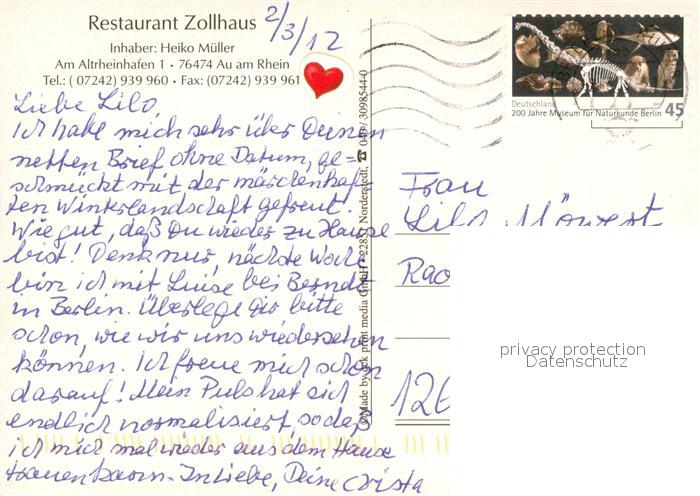 Restaurant Zollhaus
2/3/12
Inhaber: Heiko Müller
Am Altrheinhafen 1 • 76474 Au am Rhein
Tel.: ( 07242) 939 960 • Fax: (07242) 939 961
Liebe Lilo
Ich habe mich sehr über Deinen
netten Brief ohne Datum, ge=
schmückt mit der märchenhaf-
ten Winterlandschaft gefreut!
Wie gut, daß Du wieder zu Hause
bist! Denk nur, nächte Woche
bin ich mit Luise bei Berndt
in Berlin. Überlege Dir bitte
schon, wie wir uns wiedersehen
können. Ich freue mich schon
darauf! Mein Puls hat sich
endlich normalisiert, so daß
ich mich mal wieder aus dem Hause
trauen kann. In Liebe, Deine Crista
Made by print media GmbH • 22851 Norderstedt, ☎ 3098544-0
Deutschland
200 Jahre Museum für Naturkunde Berlin
45
Frau
Lilo
privacy protection
Datenschutz